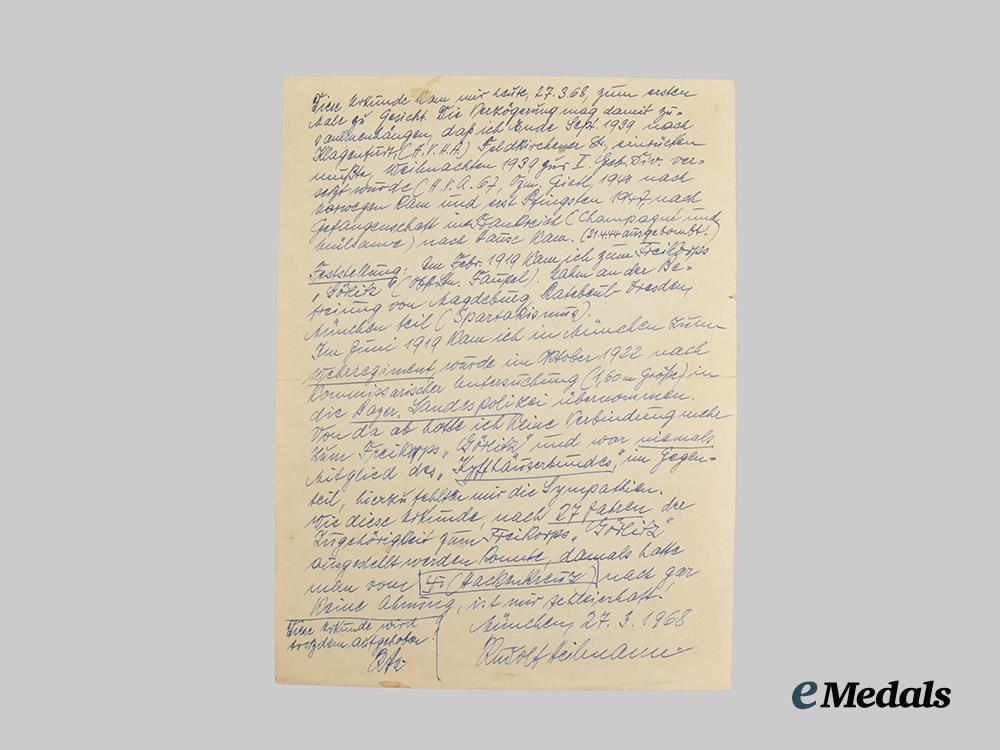 Diese Urkunde kam mir heute, 27.3.68, zum ersten
Male zu Gesicht. Die Verzögerung mag damit zu-
sammenhängen, daß ich Ende Sept. 1939 nach
Klagenfurt, (H.V.A.) Feldkirchener St., einrücken
mußte, Weihnachten 1939 zur I. Geb. Div. ver-
setzt wurde (H.V.A. 67, 19 nach
Norwegen kam und erst Pfingsten 1947 nach
Gefangenschaft in Frankreich (Champagne und
) nach Hause kam. (ausgebombt!)
Feststellung: Im Febr. 1919 kam ich zum Freikorps
"Görlitz" (Obstltn. Faupel). Nahm an der Be-
freiung von Magdeburg, Dresden,
München teil (Spartakismus).
Im Juni 1919 kam ich in München zum
Wehrregiment, wurde im Oktober 1922 nach
kommissarischer Untersuchung (1,60 m Größe) in
die Bayer. Landespolizei übernommen.
Von da ab hatte ich keine Verbindung mehr
zum Freikorps "Görlitz" und war niemals
Mitglied des "Kyffhäuserbundes", im Gegen-
teil, hierzu fehlten mir die Sympathien.
Wie diese Urkunde, nach 27 Jahren der
Zugehörigkeit zum Freikorps "Görlitz"
ausgestellt werden konnte, damals hatte
man vom 卐 (Hackenkreuz) noch gar
keine Ahnung, ist mir schleierhaft.
München, 27.3.1968
Rudolf Heilmann
Diese Urkunde wird
trotzdem aufgehoben!
eMedals